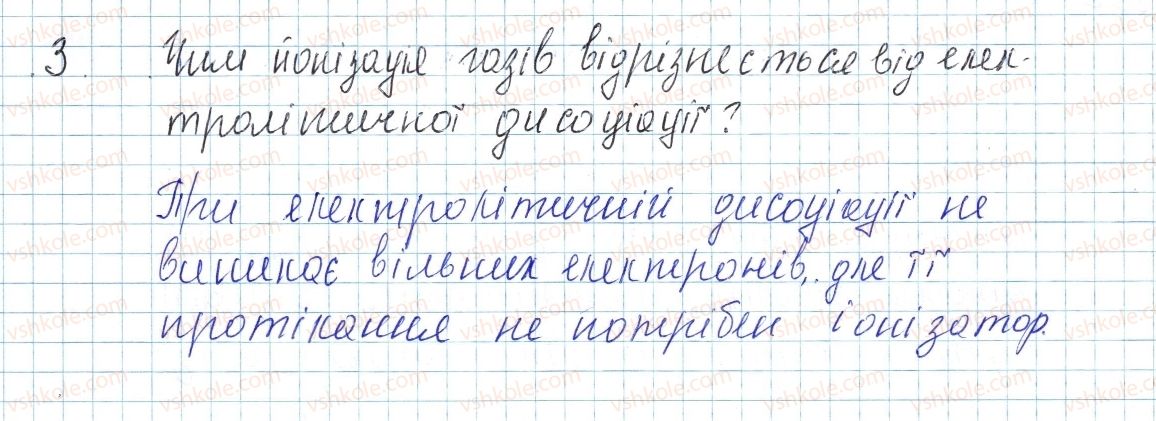 3. Чим йонізація газів відрізнється від елек-
тролітичної дисоціації?
При електролітичній дисоціації не
виникає вільних електронів, для її
протікання не потрібен іонізатор.